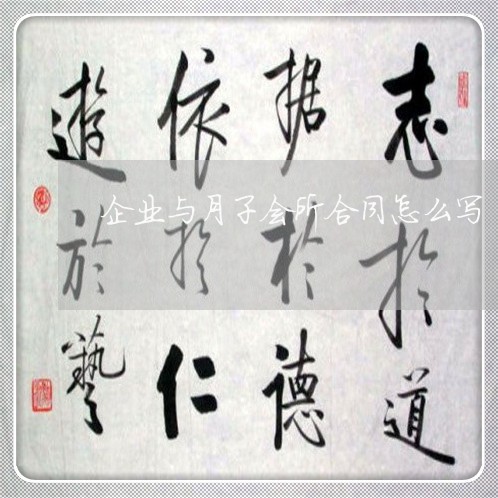 志於道
据於德
依於仁
遊於藝
企业与月子会所合同怎么写